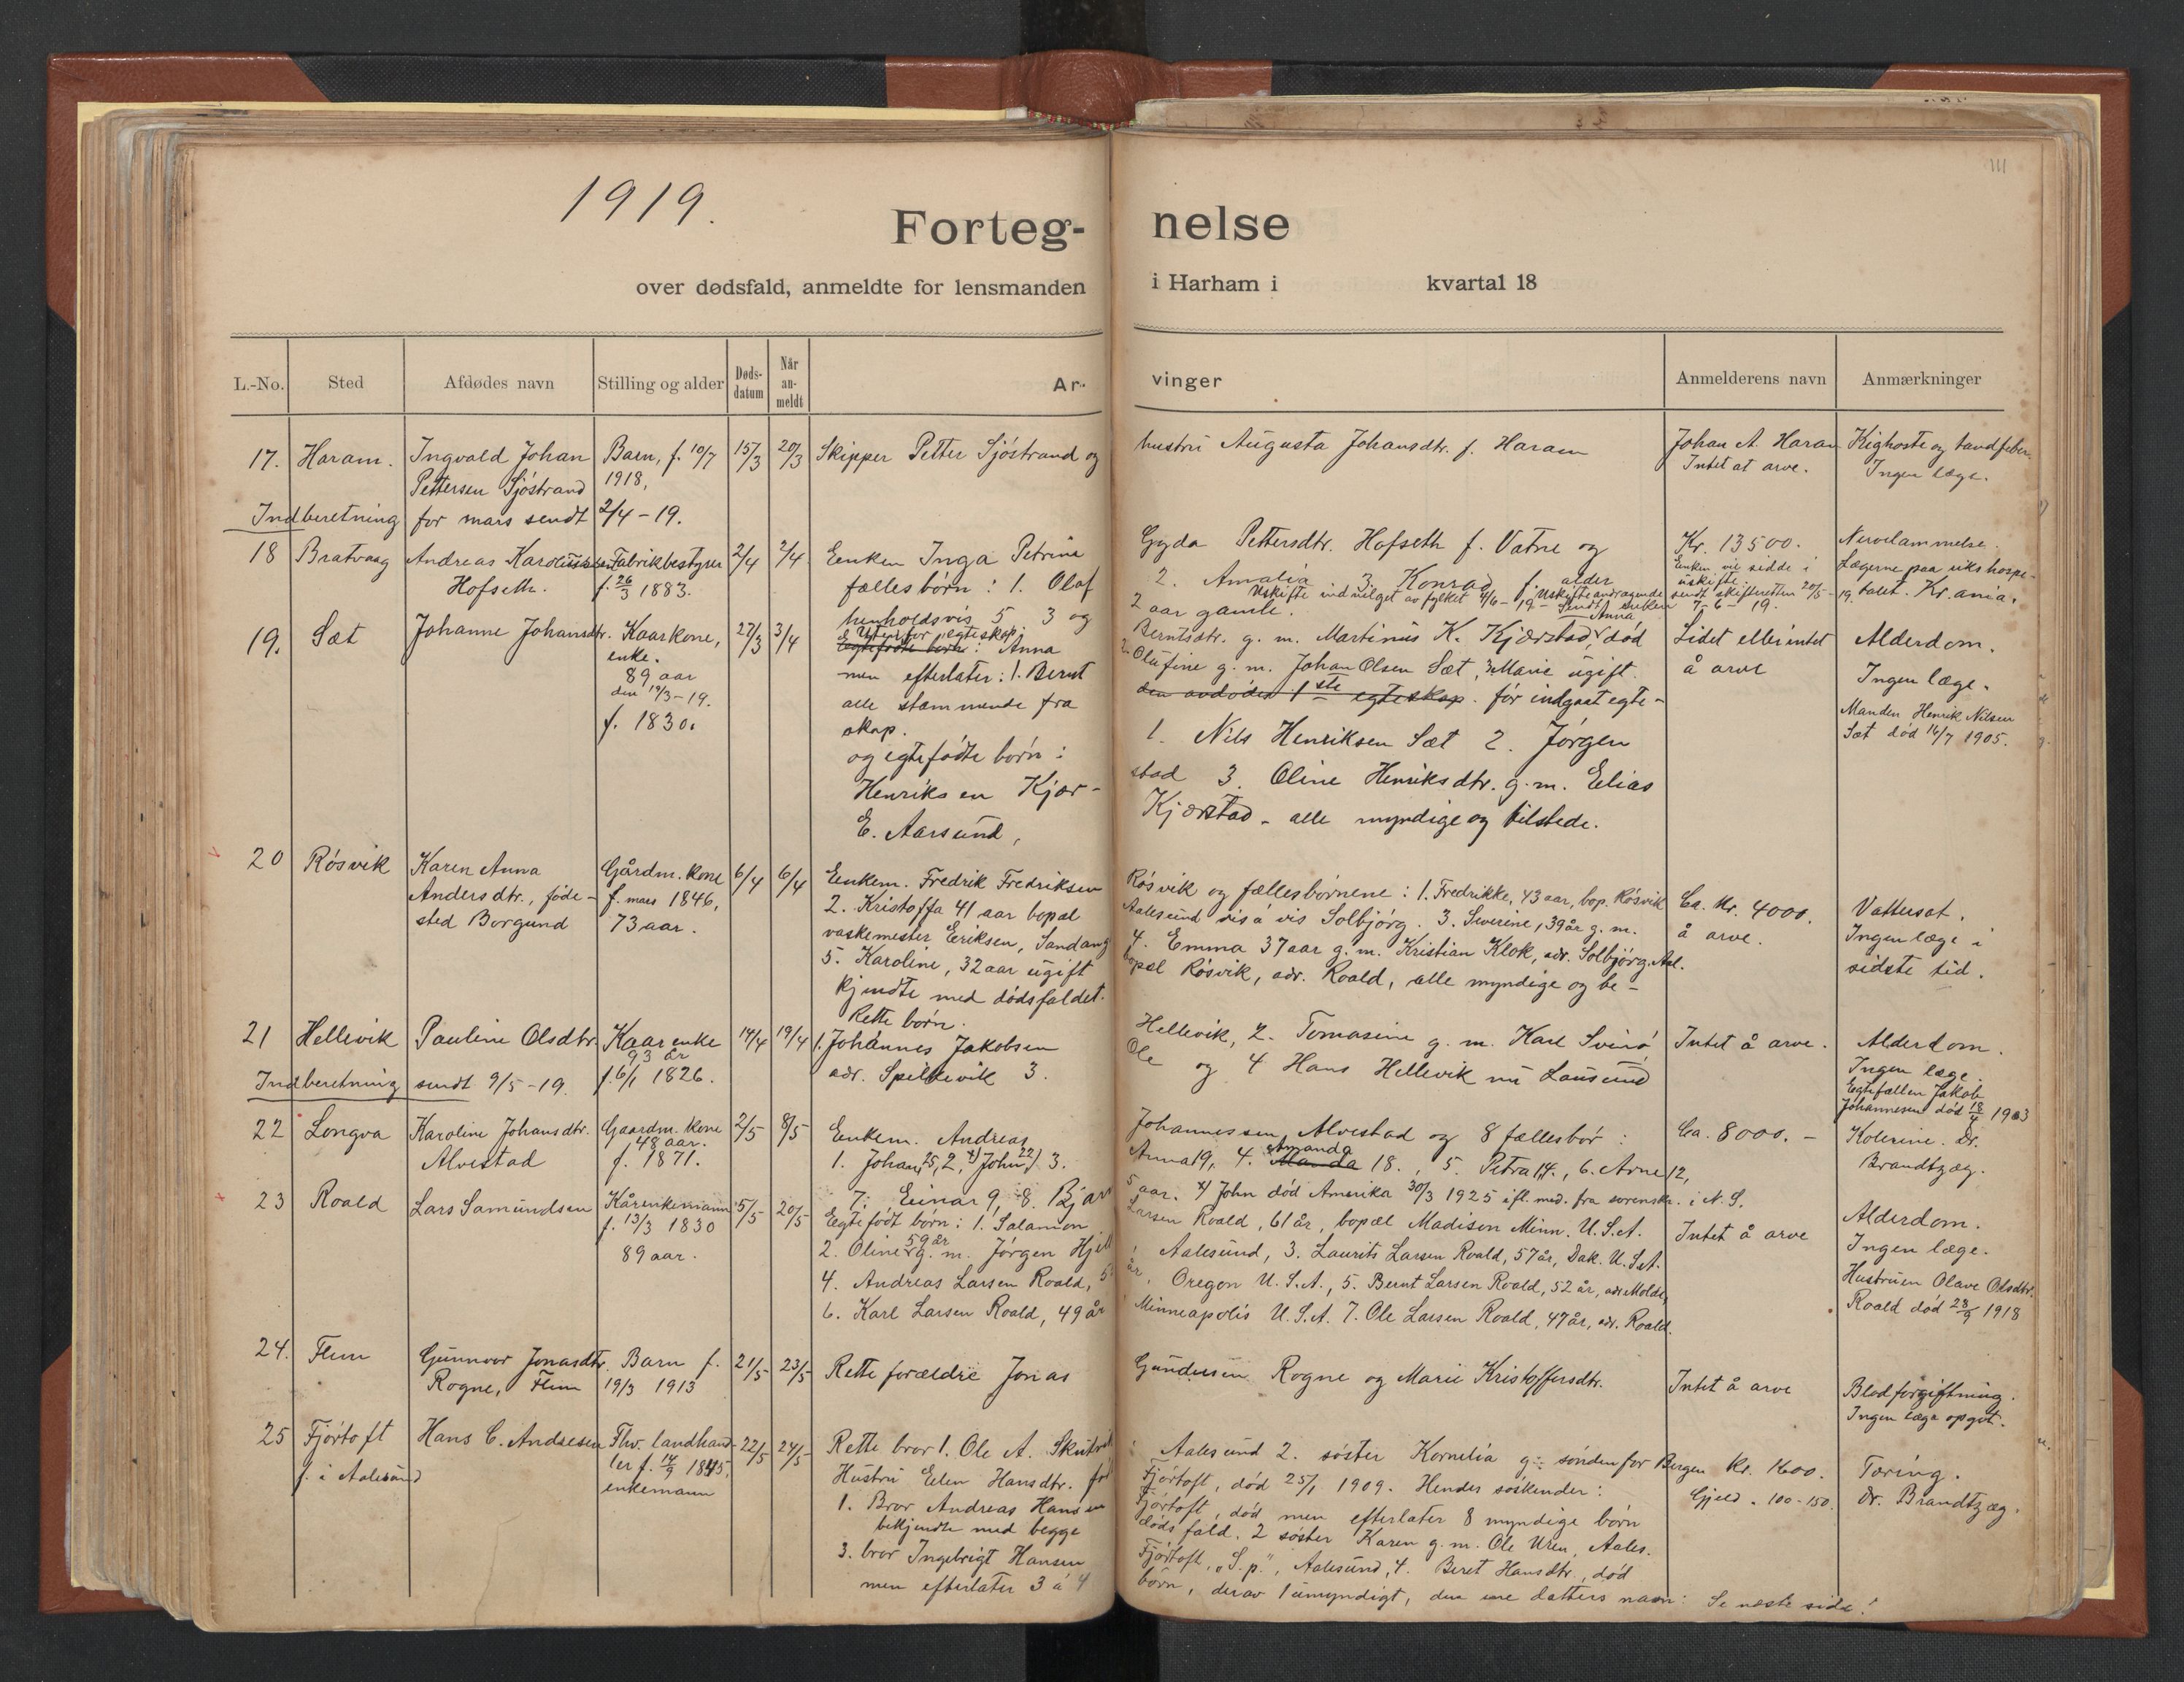 111
1919.
Forteg-
nelse
over dødsfald, anmeldte for lensmanden
i Harham i kvartal 18
L.-No. Sted Afdødes navn Stilling og alder Døds-datum Når an-meldt Ar-
vinger Anmelderens navn Anmærkninger
17. Haram. Ingvald Johan Barn, f. 10/7 15/3 20/3 Skipper Petter Sjöstrand og
hustru Augusta Johansdtr. f. Haram Johan A. Haram Kighoste og tandfeber.
Pettersen Sjöstrand 1918,
Intet at arve. Ingen læge.
Indberetning for mars sendt 2/4 - 19.
18 Bratvaag Andreas Karolussen Fabrikbestyrer 2/4 2/4 Enken Inga Petrine
Gyda Pettersdtr. Hofseth f. Vatne og Kr. 13500. Nervelammelse.
Hofseth. f. 26/3 1883. fællesbörn: 1. Olaf
2. Amalia 3. Konrad f. alder Enken vil sidde i uskifte. Lægerne paa rikshospi-
henholdsvis 5 3 og
Uskifte indvilget av fylket 4/6 - 19 - Sendt enken 7-6-19.
Uskifteandragende sendt skifteretten 20/5 - 19. talet. Kr.ania.
2 aar gamle.
19. Sæt Johanne Johansdtr. Kaarkone, 27/3 3/4 Utenfor egteskap
Egtefödte börn: Anna
Berntsdtr. g. m. Martinus K. Kjærstad, Anna död Lidet eller intet Alderdom.
enke. men efterlater: 1. Bernt
2. Olufine g. m. Johan Olsen Sæt, 3. Marie ugift. å arve Ingen læge.
89 aar alle stammende fra
den avdödes 1ste egteskap. för indgaat egte-
den 19/3 - 19. skap. Manden Henrik Nilsen
f. 1830. og egtefödte börn:
1. Nils Henriksen Sæt 2. Jörgen Sæt död 16/7 1905.
Henriksen Kjær-
stad 3. Oline Henriksdtr. g. m. Elias
E. Aarsund,
Kjærstad - alle myndige og tilstede.
20 Rösvik Karen Anna Gårdm. kone 6/4 6/4 Enkem. Fredrik Fredriksen
Rösvik og fællesbörnene: 1. Fredrikke, 43 aar, bop. Rösvik Ca. Kr. 4000. Vattersot.
Andersdtr., föde- f. mars 1846, 2. Kristoffa 41 aar bopæl
Aalesund vis á vis Solbjörg. 3. Severine, 39 år g. m. å arve. Ingen læge i
sted Borgund 73 aar. vaskemester Eriksen, Sandang
4. Emma 37 aar g. m. Kristian Klok, adr. Solbjörg. Aal. sidste tid.
5. Karoline, 32 aar ugift
bopæl Rösvik, adr. Roald, alle myndige og be-
kjendte med dödsfaldet.
Rette börn.
21 Hellevik Pauline Olsdtr. Kaarenke 14/4 19/4 1. Johannes Jakobsen
Hellevik, 2. Tomasine g. m. Karl Svinö, Intet å arve. Alderdom.
93 år
Indberetning sendt 9/5 - 19. f. 6/1 1826. adr. Spilkevik 3.
Ole og 4 Hans Hellevik nu Lausund Ingen læge.
Egtefællen Jakob
Johannesen död 18/4 1903
22 Longva Karoline Johansdtr. Gaardm. kone 2/5 8/5 Enkem. Andreas
Johannessen Alvestad og 8 fællesbör: Ca. 8000. - Kolerine. Dr.
Alvestad 48 aar. 1. Johan 25, 2. x) John 22) 3.
f. 1871. Anna 19, 4. Amanda 18., 5. Petra 14., 6. Arne 12, Brandtzæg.
7. Einar 9, 8. Bjar
5 aar. x) John död Amerika 30/3 1925 ifl. med. fra sorenskr. i N. S.
23 Roald Lars Samundsen Kårenkemann 5/5 20/5 Egtefödt börn: 1. Salamon
Larsen Roald, 61 år, bopæl Madison Minn. U.S.A. Intet å arve Alderdom.
f. 13/3 1830 2. Oline 59 år g. m. Jörgen Hjell
Aalesund, 3. Laurits Larsen Roald, 57 år, Dak. U.S.A. Ingen læge.
89 aar. 4. Andreas Larsen Roald, 5
år, Oregon U.S.A., 5. Bernt Larsen Roald, 52 år, adr. Molde, Hustruen Olave Olsdtr.
6. Karl Larsen Roald, 49 år
Minneapolis U.S.A. 7. Ole Larsen Roald, 47 år, adr. Roald. Roald död 28/9 1918
24. Flem Gunnvor Jonasdtr. Barn f. 21/5 23/5 Rette forældre Jonas
Gundersen Rogne og Marie Kristoffersdtr. Intet å arve Blodforgiftning.
Rogne, Flem 19/3 1913
Ingen læge opgit.
25 Fjörtoft Hans C. Andsesen Fhv. landhand- 22/5 24/5 Rette bror 1. Ole A. Skutvik
Aalesund 2. söster Kornelia g: sönden for Bergen Kr. 1600. Tæring.
f. i Aalesund ler f. 14/9 1845, Hustru Elen Hansdtr. föd
Fjörtoft, död 25/1 1909. Hendes söskender: Gjeld. 100-150. Dr. Brandtzæg.
enkemann 1. Bror Andreas Hansen
Fjörtoft, död men efterlater 8 myndige börn
bekjendte med begge
dödsfald. 2 söster Karen g. m. Ole Uren, Aales.
3. bror Ingebrigt Hansen
Fjörtoft, "S.p.", Aalesund, 4. Beret Hansdtr, död
men efterlater 3 á 4
börn, derav 1 umyndigt, den ene datters navn: Se næste side!